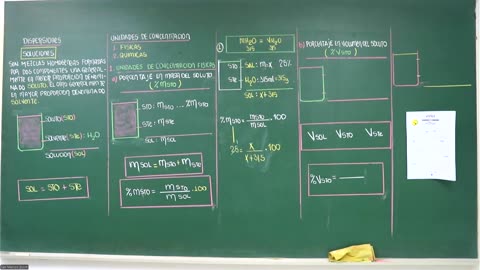 DISPERSIONES
SOLUCIONES
SON MEZCLAS HOMOGÉNEAS FORMADAS
POR DOS COMPONENTES UNA GENERAL-
MENTE EN MENOR PROPORCIÓN DENOMI-
NADO SOLUTO, EL OTRO GENERALMENTE
EN MAYOR PROPORCIÓN DENOMINADO
SOLVENTE.
SOLUTO(STO)
SOLVENTE(STE): H2O
SOLUCIÓN(SOL)
SOL = STO + STE
UNIDADES DE CONCENTRACIÓN
1. FÍSICAS
2. QUÍMICAS
1. UNIDADES DE CONCENTRACIÓN FÍSICAS
a) PORCENTAJE EN MASA DEL SOLUTO
(%mSTO)
STO: mSTO ... %mSTO
STE: mSTE
SOL: mSOL
mSOL = mSTO + mSTE
%mSTO = mSTO / mSOL .100
mH2O = VH2O
315 315
STO
STE
SOL: m:x 25%
H2O: 315ml = 315g
SOL: x+315
%mSTO = mSTO / mSOL .100
25 = x / x+315 .100
b) PORCENTAJE EN VOLUMEN DEL SOLUTO
(%VSTO)
VSOL VSTO VSTE
%VSTO =